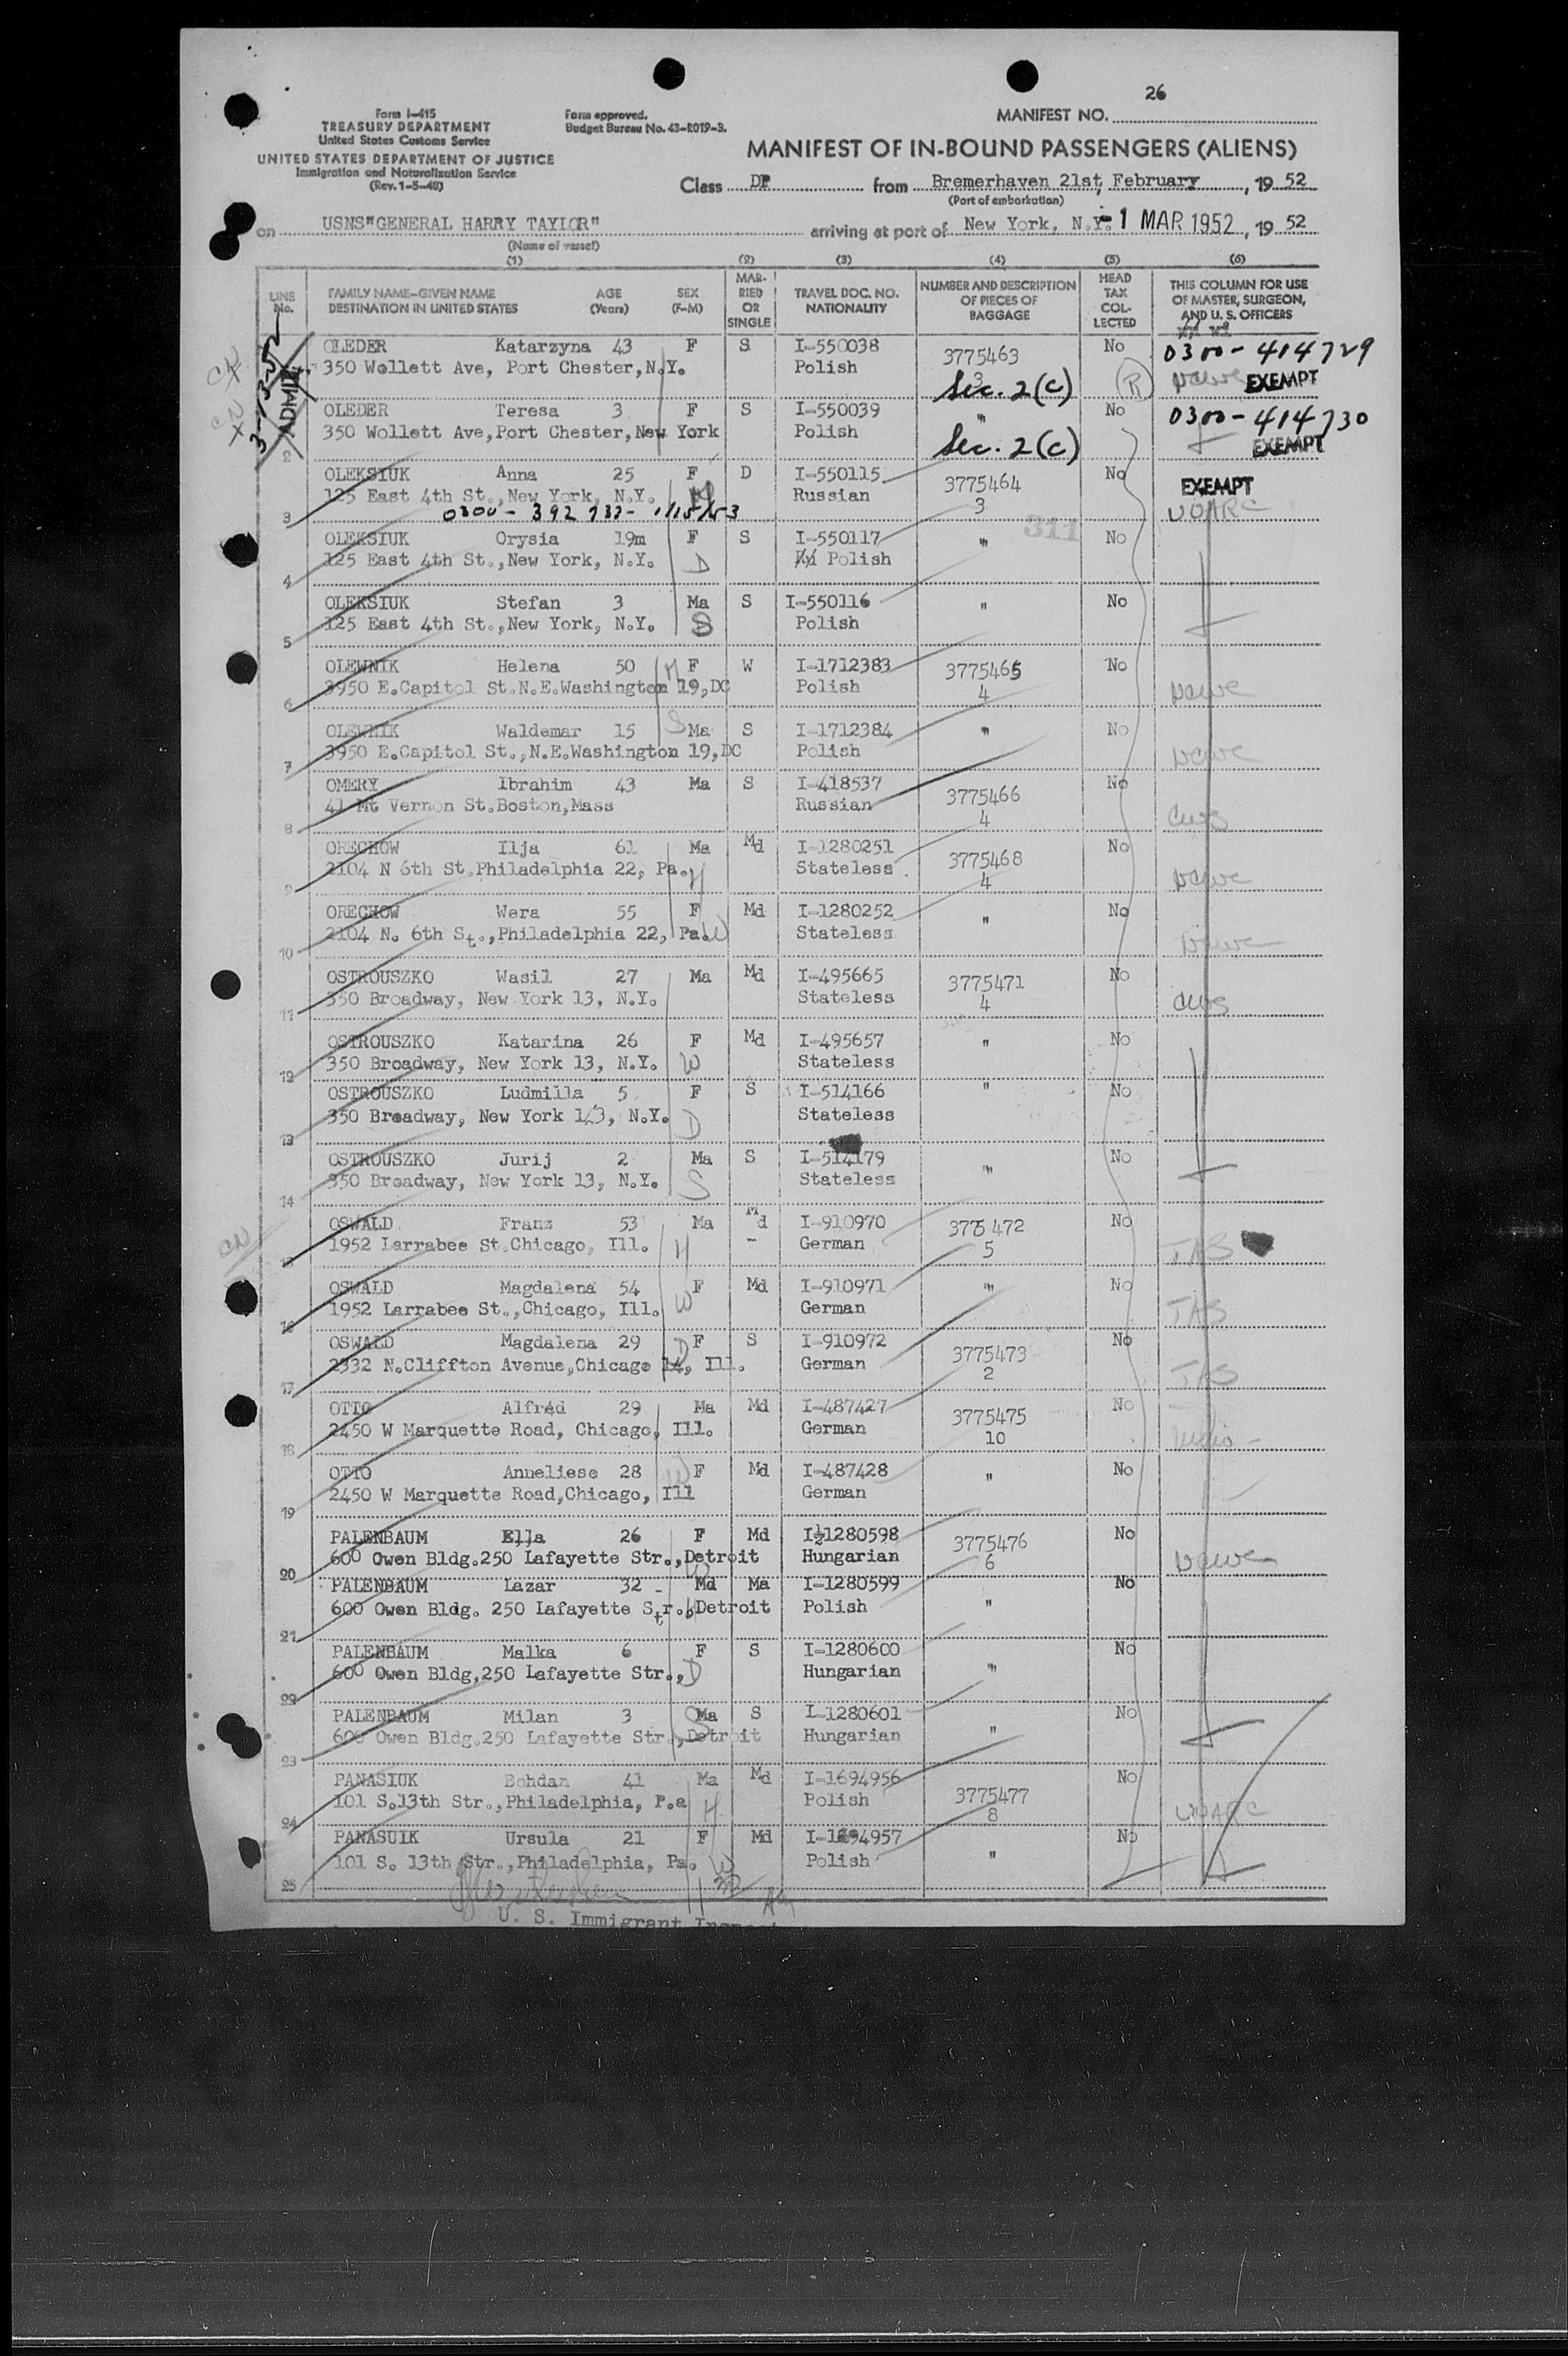 26
Form I-415
TREASURY DEPARTMENT
United States Customs Service
UNITED STATES DEPARTMENT OF JUSTICE
Immigration and Naturalization Service
(Rev. 1-5-48)
Form approved.
Budget Bureau No. 43-R019-3.
MANIFEST NO.
MANIFEST OF IN-BOUND PASSENGERS (ALIENS)
Class DP from Bremerhaven 21st, February, 19 52
(Port of embarkation)
on USNS"GENERAL HARRY TAYLOR" arriving at port of New York, N.Y. -1 MAR 1952, 19 52
(Name of vessel)
(1) (2) (3) (4) (5) (6)
LINE No. FAMILY NAME-GIVEN NAME DESTINATION IN UNITED STATES AGE (Years) SEX (F-M) MARRIED OR SINGLE TRAVEL DOC. NO. NATIONALITY NUMBER AND DESCRIPTION OF PIECES OF BAGGAGE HEAD TAX COLLECTED THIS COLUMN FOR USE OF MASTER, SURGEON, AND U. S. OFFICERS
OLEDER Katarzyna 43 F S I-550038 3775463 No 0300-414729
350 Wollett Ave, Port Chester, N.Y. Polish 3 Sec. 2(c) R EXEMPT
OLEDER Teresa 3 F S I-550039 " No 0300-414730
2 350 Wollett Ave, Port Chester, New York Polish Sec. 2(c) EXEMPT
OLEKSIUK Anna 25 F D I-550115 3775464 No EXEMPT
125 East 4th St., New York, N.Y. Russian 3
3 0300-392733- 1/15/53
311
OLEKSIUK Orysia 19m F S I-550117 " No
4 125 East 4th St., New York, N.Y. D Polish
OLEKSIUK Stefan 3 Ma S I-550116 " No
5 125 East 4th St., New York, N.Y. S Polish
OLEWNIK Helena 50 F W I-1712383 3775465 No
6 3950 E.Capitol St.N.E.Washington 19,DC Polish 4
OLEWNIK Waldemar 15 S Ma S I-1712384 " No
7 3950 E.Capitol St.,N.E.Washington 19,DC Polish
OMERY Ibrahim 43 Ma S I-418537 3775466 No
8 41 Mt Vernon St.Boston,Mass Russian 4 cws
ORECHOW Ilja 61 Ma Md I-1280251 3775468 No
9 2104 N 6th St.Philadelphia 22, Pa. H Stateless 4
ORECHOW Wera 55 F Md I-1280252 " No
10 2104 N. 6th St.,Philadelphia 22, Pa. W Stateless
OSTROUSZKO Wasil 27 Ma Md I-495665 3775471 No
11 350 Broadway, New York 13, N.Y. Stateless 4 cws
OSTROUSZKO Katarina 26 F Md I-495657 " No
12 350 Broadway, New York 13, N.Y. W Stateless
OSTROUSZKO Ludmilla 5 F S I-514166 " No
13 350 Broadway, New York 13, N.Y. D Stateless
OSTROUSZKO Jurij 2 Ma S I-514179 " No
14 350 Broadway, New York 13, N.Y. S Stateless
OSWALD Franz 53 Ma Md I-910970 3775472 No
15 1952 Larrabee St.Chicago, Ill. H German 5 TAS
OSWALD Magdalena 54 F Md I-910971 " No
16 1952 Larrabee St.,Chicago, Ill. W German TAS
OSWALD Magdalena 29 D F S I-910972 3775473 No
17 2332 N.Cliffton Avenue,Chicago 14, Ill. German 2 TAS
OTTO Alfréd 29 Ma Md I-487427 3775475 No
18 2450 W Marquette Road, Chicago, Ill. German 10
OTTO Anneliese 28 W F Md I-487428 " No
19 2450 W Marquette Road,Chicago, Ill German
PALENBAUM Ella 26 F Md I-1280598 3775476 No
20 600 Owen Bldg.250 Lafayette Str.,Detroit W Hungarian 6
PALENBAUM Lazar 32 Md Ma I-1280599 No
21 600 Owen Bldg. 250 Lafayette Str., Detroit Polish "
PALENBAUM Malka 6 F S I-1280600 No
22 600 Owen Bldg,250 Lafayette Str., D Hungarian "
PALENBAUM Milan 3 Ma S I-1280601 No
23 600 Owen Bldg.250 Lafayette Str.,Detroit Hungarian "
PANASIUK Bohdan 41 Ma Md I-1694956 3775477 No
24 101 S.13th Str.,Philadelphia, P.a H Polish 8
PANASUIK Ursula 21 F Md I-1694957 No
25 101 S. 13th Str.,Philadelphia, Pa. W Polish "
U. S. Immigrant